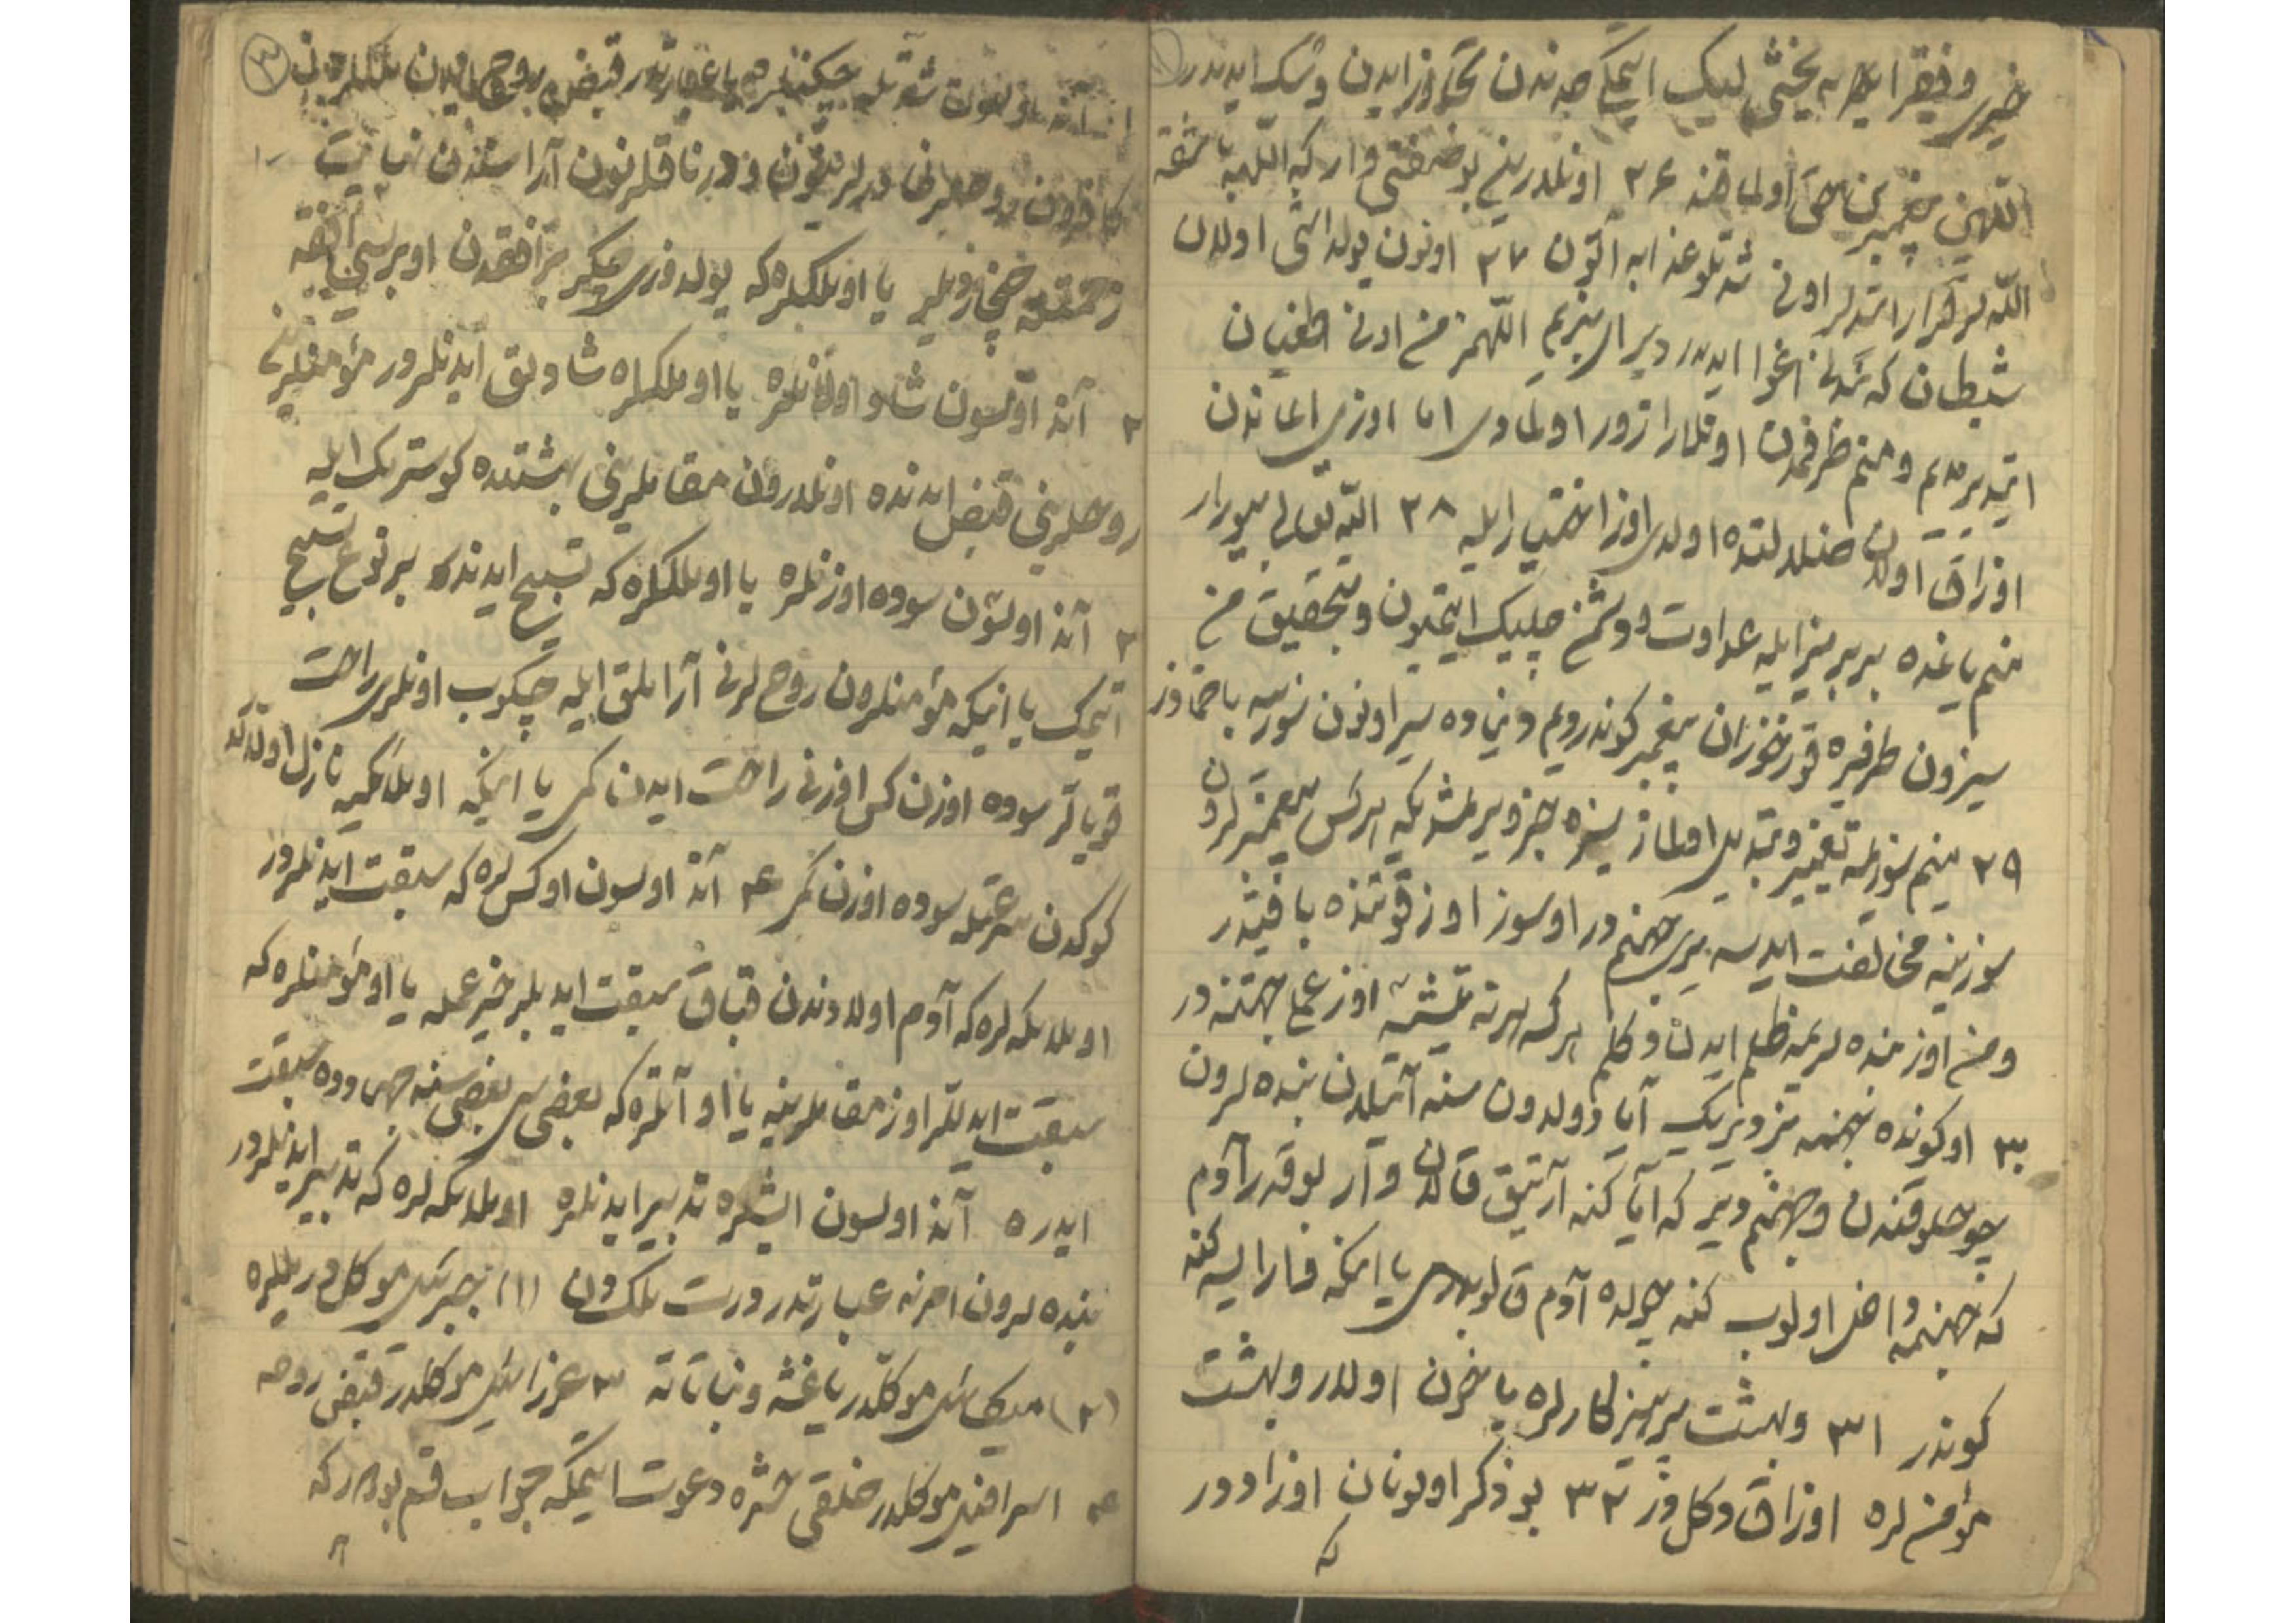 خیری و فقرا لره یخشی لیک ایتمکی حدندن تجاوز ایدن و شک ایدندر
اللهین پیغمبرینن حق اولماقنه ۲۶ اونلدرینی بو صفتی وار که اللهه باشقه
الله لر قرار اتدلر اونی شدتلو عذابه آتون ۲۷ اونون یولداشی اولان
شیطان که شدنی اغوا ایدیدر دیر ای بنزیم اللهمز من اونی طغیان
اتدیرمدیم و منم طرفمدن اونلارا زور اولمادی اما اوزی ایماندن
اوزاق اولان ضلالتده اولدی اوز اختیار ایله ۲۸ الله تعالی بیورار
منم یانمده بربریز ایله عداوت و دوشمنچلیک ایتمیون و تحقیق من
سیزون طرفزه قورخوزان پیغمبر کوندردیم دنیاده سیز اونون سوزینه باخمادوز
۲۹ منم سوزیمه تغییر و تبدیل اولماز سیزه خبر ویرمشدیم که هر کس پیغمبرلرون
سوزینه مخالفت ایدسه یری جهنمدور او سوز اوز قوتنده باقیدر
و من اوز بنده لریمه ظلم ایدن دکلم هر کسه هر نه یتیشسه اوز عملی جهتنه در
۳۰ او کونده جهنمه بیز دیریک آیا دولدون سنه آتیلدن بنده لرون
چوخلوقندن و جهنم دیر که آیا کنه آرتیق قالان وار بو قدر آدم
که جهنمه داخل اولوب کنه چولده آدم قالوبدی یا اینکه وار ایسه کنه
کوندر ۳۱ و بهشت پرهیزکارلره یاخون اولدر و بهشت
مؤمن لره اوزاق دکلدور ۳۲ بو ذکر اولونان اوزادور
که
۳
شدتیله چکنلره یا عبارتدر قبض روح ایدن ملکلردن
کافرون روحلرنی دریلرینون و درناقلرنون آراسندن نهایت
زحمتیله چخاردیلر یا اولملکلره که یولدوزی چکیر بر افقدن او بریسی افقه
۲ آند اولسون شاد اولانلره یا او ملکلره شادلق ایدنلردور مؤمنلرینی
روحلرینی قبض ایدنده اونلدرون مقاملرینی بهشتده کوسترمک ایله
۳ آند اولسون سوده اوزنلره یا او ملکلره که تسبیح ایدنده بر نوع تسبیح
اتیمک یا اینکه مؤمنلرون روحلرنی آراملق ایله چکوب اونلری راحت
قویالر سوده اوزن کس اوزنی راحت ایدن کمی یا اینکه او ملاکیه نازل اولاللر
کوکدن سرعتله سوده اوزن کمی ۴ آند اولسون او کس لره که سبقت ایدنلردور
او ملایکه لره که آدم اولادوندن قباق سبقت ایدیلر خیر عمله یا او مؤمنلره که
سبقت ایدیلر اوز مقاملرینه یا او آتلره که بعضی سی بعضی سنه جهادده سبقت
ایدر ۵ آند اولسون ایشلره تدبیر ایدنلره او ملایکه لره که تدبیر ایدنلردور
بنده لرون امرنه عبارتدر دورت ملکدن (۱) جبرئیل موکلدور یللره
(۲) میکائیل موکلدر یاغشه و نباتاته ۳ عزرائیل موکلدر قبض روحه
۴ اسرافیل موکلدر خلقی حشره دعوت ایتمکه جواب قسم بودر که